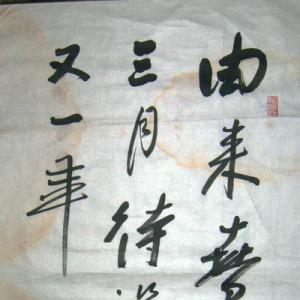 由来春
三月待
又一年